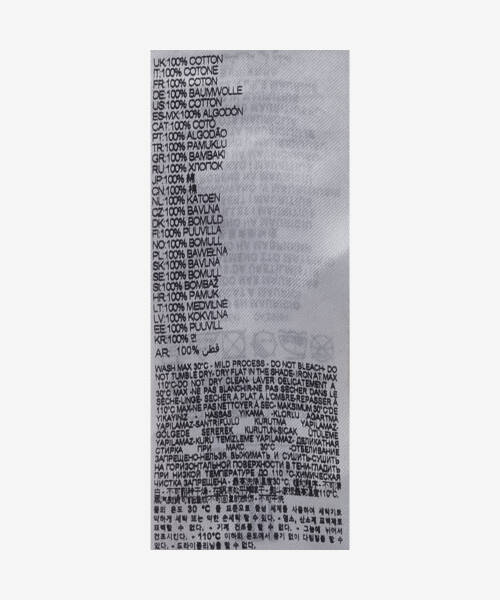 UK:100% COTTON
IT:100% COTONE
FR:100% COTON
DE:100% BAUMWOLLE
US:100% COTTON
ES-MX:100% ALGODÓN
CAT:100% COTÓ
PT:100% ALGODÃO
TR:100% PAMUKLU
GR:100% BAMBAKI
RU:100% ХЛОПОК
JP:100% 綿
CN:100% 棉
NL:100% KATOEN
CZ:100% BAVLNA
DK:100% BOMULD
FI:100% PUUVILLA
NO:100% BOMULL
PL:100% BAWEŁNA
SK:100% BAVLNA
SE:100% BOMULL
SI:100% BOMBAŽ
HR:100% PAMUK
LT:100% MEDVILNĖ
LV:100% KOKVILNA
EE:100% PUUVILL
KR:100% 면
AR: 100% قطن
WASH MAX 30°C - MILD PROCESS - DO NOT BLEACH- DO
NOT TUMBLE DRY- DRY FLAT IN THE SHADE- IRON AT MAX
110°C-DO NOT DRY CLEAN- LAVER DELICATEMENT A
30°C MAX -NE PAS BLANCHIR-NE PAS SÉCHER DANS LE
SÈCHE-LINGE- SÉCHER A PLAT A L'OMBRE-REPASSER À
110°C MAX-NE PAS NETTOYER A SEC- MAKSIMUM 30°C'DE
YIKAYINIZ - HASSAS YIKAMA -KLORLU AĞARTMA
YAPILMAZ-SANTRIFUJLU KURUTMA YAPILMAZ-
GÖLGEDE SEREREK KURUTUN-SICAK ÜTÜLEME
YAPILMAZ-KURU TEMIZLEME YAPILMAZ- ДЕЛИКАТНАЯ
СТИРКА ПРИ МАКС. 30°C -ОТБЕЛИВАНИЕ
ЗАПРЕЩЕНО-НЕЛЬЗЯ ВЫЖИМАТЬ И СУШИТЬ-СУШИТЬ
НА ГОРИЗОНТАЛЬНОЙ ПОВЕРХНОСТИ В ТЕНИ-ГЛАДИТЬ
ПРИ НИЗКОЙ ТЕМПЕРАТУРЕ ДО 110 °C-ХИМИЧЕСКАЯ
ЧИСТКА ЗАПРЕЩЕНА-
물의 온도 30 °C 를 표준으로 중성 세제를 사용하여 세탁기로
약하게 세탁 또는 약한 손세탁 할 수 있다. - 염소, 산소계 표백제로
표백할 수 없다. - 기계 건조를 할 수 없다. - 그늘에 뉘어서
건조시킨다. - 110°C 이하의 온도에서 증기 없이 다림질을 할 수
있다. - 드라이클리닝을 할 수 없다.